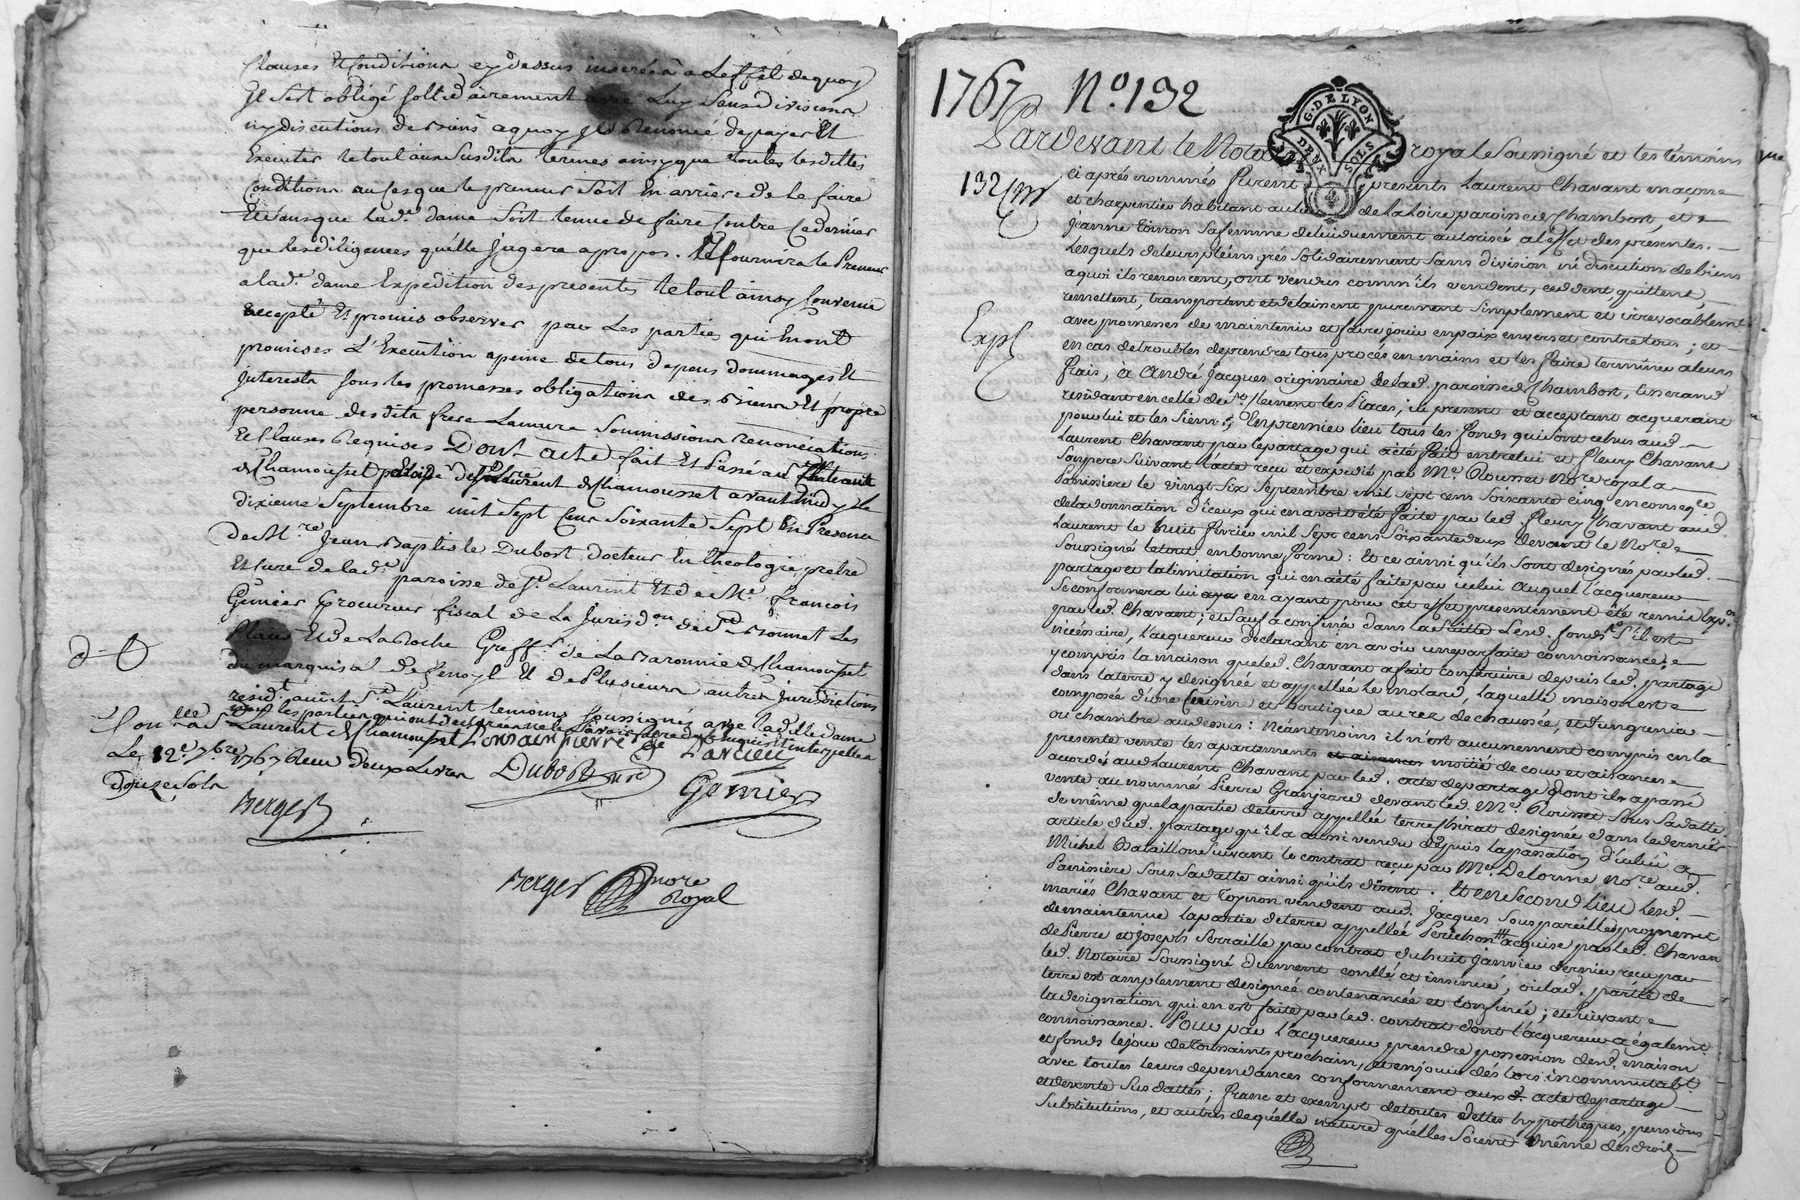 Clauses et conditions cy dessus inserées a Leffet dequoy
Il s'est obligé sollidairement avec Luy sans divisions
ny discutions de biens aquoy Ils Renoncé de payer Et
Executer le tout aux susdits termes ainsy que toutes lesdittes
Conditions au cas que le preneur soit En arriere de le faire
Et sans que lade dame soit tenue de faire contre ce dernier
que les diligences qu'elle jugera apropos. Et fournira le Preneur
a lade dame Expedition des presentes le tout ainsy Convenu
accepté Et promis observer par Les parties qui En ont
promises L'Execution apeine de tous depens dommages Et
Interests sous les promesses obligations des biens Et propre
personne desdits frere Lamure soumissions renonciations
Et Clauses Requises Dont acte fait Et Passé au Chateau
de Chamousset paroisse de St Laurent de Chamousset avant midy le
dixieme Septembre mil Sept Cens Soixante Sept En Presence
de Mre Jean Baptiste Dubost docteur En theologie, prêtre
Et Curé de lade paroisse de St Laurent Et de Me François
Genier Procureur fiscal de La Jurisdon de St Bonnet Les
Places Et de La Roche Greffr de La Baronnie de Chamousset
du marquisat de fenoyl Et de Plusieurs autres Jurisdictions
residt audt St Laurent temoins soussignés avec laditte dame
d-O
Con lle a St Laurent de Chamousset
Le 12e 7bre 1767 Reçu deux Livres
Douze Sols
Berger
Dubost curé
Genier
Berger nore
Royal
1767 No. 132
Pardevant le Nota royal Soussigné et les témoins
G. DE LYON
DEUX SOLS
132
ci aprés nommés furent presents Laurent Chavant maçon
et charpentier habitant au lieu de la Loire paroisse de Chambost, et
Jeanne Toinon sa femme de lui duement autorisée a l'effet des présentes.
Lesquels de leurs pleins grés solidairement sans division ni discution de biens
a quoi ils renoncent, ont vendus comm'ils vendent, cedent, quittent,
remettent, transportent et delaissent purement simplement et irrevocablemt
avec promesses de maintenir et faire jouir en paix envers et contre tous ; et
Expé
en cas de troubles de prendre tous procés en mains et les faire terminer a leurs
frais, a André Jacques originaire de lad. paroisse de Chambost, tisserand
résidant en celle de St Clement les Places, ici present et acceptant acquereur
pour lui et les siens ; En premier lieu tous les fonds qui sont echus aud.
Laurent Chavant par le partage qui a été fait entre lui et Fleury Chavant
son pere suivant l'acte reçu et expedié par Me. Rousset Nore royal a
Panissiere le vingt six Septembre mil sept cens soixante cinq en conseqce
de la donnation d'iceux qui en avoit été faite par led. Fleury Chavant aud.
Laurent le huit fevrier mil sept cens soixante deux devant le Nore
soussigné le tout en bonne forme : Et ce ainsi qu'ils sont designés par led.
partage et la limitation qui en a été faite par icelui auquel l'acquereur
se conformera lui en ayant pour cet effet presentement été remis Expon
par led. Chavant ; et sauf a confiner dans la suitte lesd. fonds s'il est
nécéssaire, l'acquereur declarant en avoir une parfaite connoissance ;
y compris la maison que led. Chavant a fait construire depuis led. partage
dans la terre y designée et appellée Le molard, laquelle maison est
composée d'une Cuisine et boutique au rez de chaussée, et d'un grenier
ou chambre au dessus : Néantmoins il n'est aucunement compris en la
presente vente les apartements et aisances moitié de cour et aisances
accordés aud Laurent Chavant par led. acte de partage dont il a passé
vente au nommé Pierre Granjeard devant led. Me. Rousset sous sa datte.
de même que la partie de terre appellée terre Chirat designée dans le dernier
article dud. partage qu'il a aussi vendu depuis la passation d'icelui a
Michel Bataillon suivant le contrat reçu par Me. Delorme Nore aud.
Panissiere sous sa datte ainsi qu'ils disent. Et en Second lieu lesd.
mariés Chavant et Toynon vendent aud. Jacques sous pareilles promesses
de maintenue la partie de terre appellée Perichon acquise par led. Chavan
de Pierre et Joseph Serraille par contrat du huit Janvier dernier reçu par
led. Notaire Soussigné duement conllé et insinué, où lad. partie de
terre est amplement designée contenancée et confinée ; et suivant
la designation qui en est faite par led. contrat dont l'acquereur a égalemt
connoissance. Pour par l'acquereur prendre possession desd. maison
et fonds le jour de Toussaints prochain, et en jouir dés lors incommutablt
avec toutes leurs dependances conformement aux d. acte de partage
et de vente susdattés ; franc et exempt de toutes dettes hypotheques, pensions
substitutions, et autres de quelle nature qu'elles soient même des droits